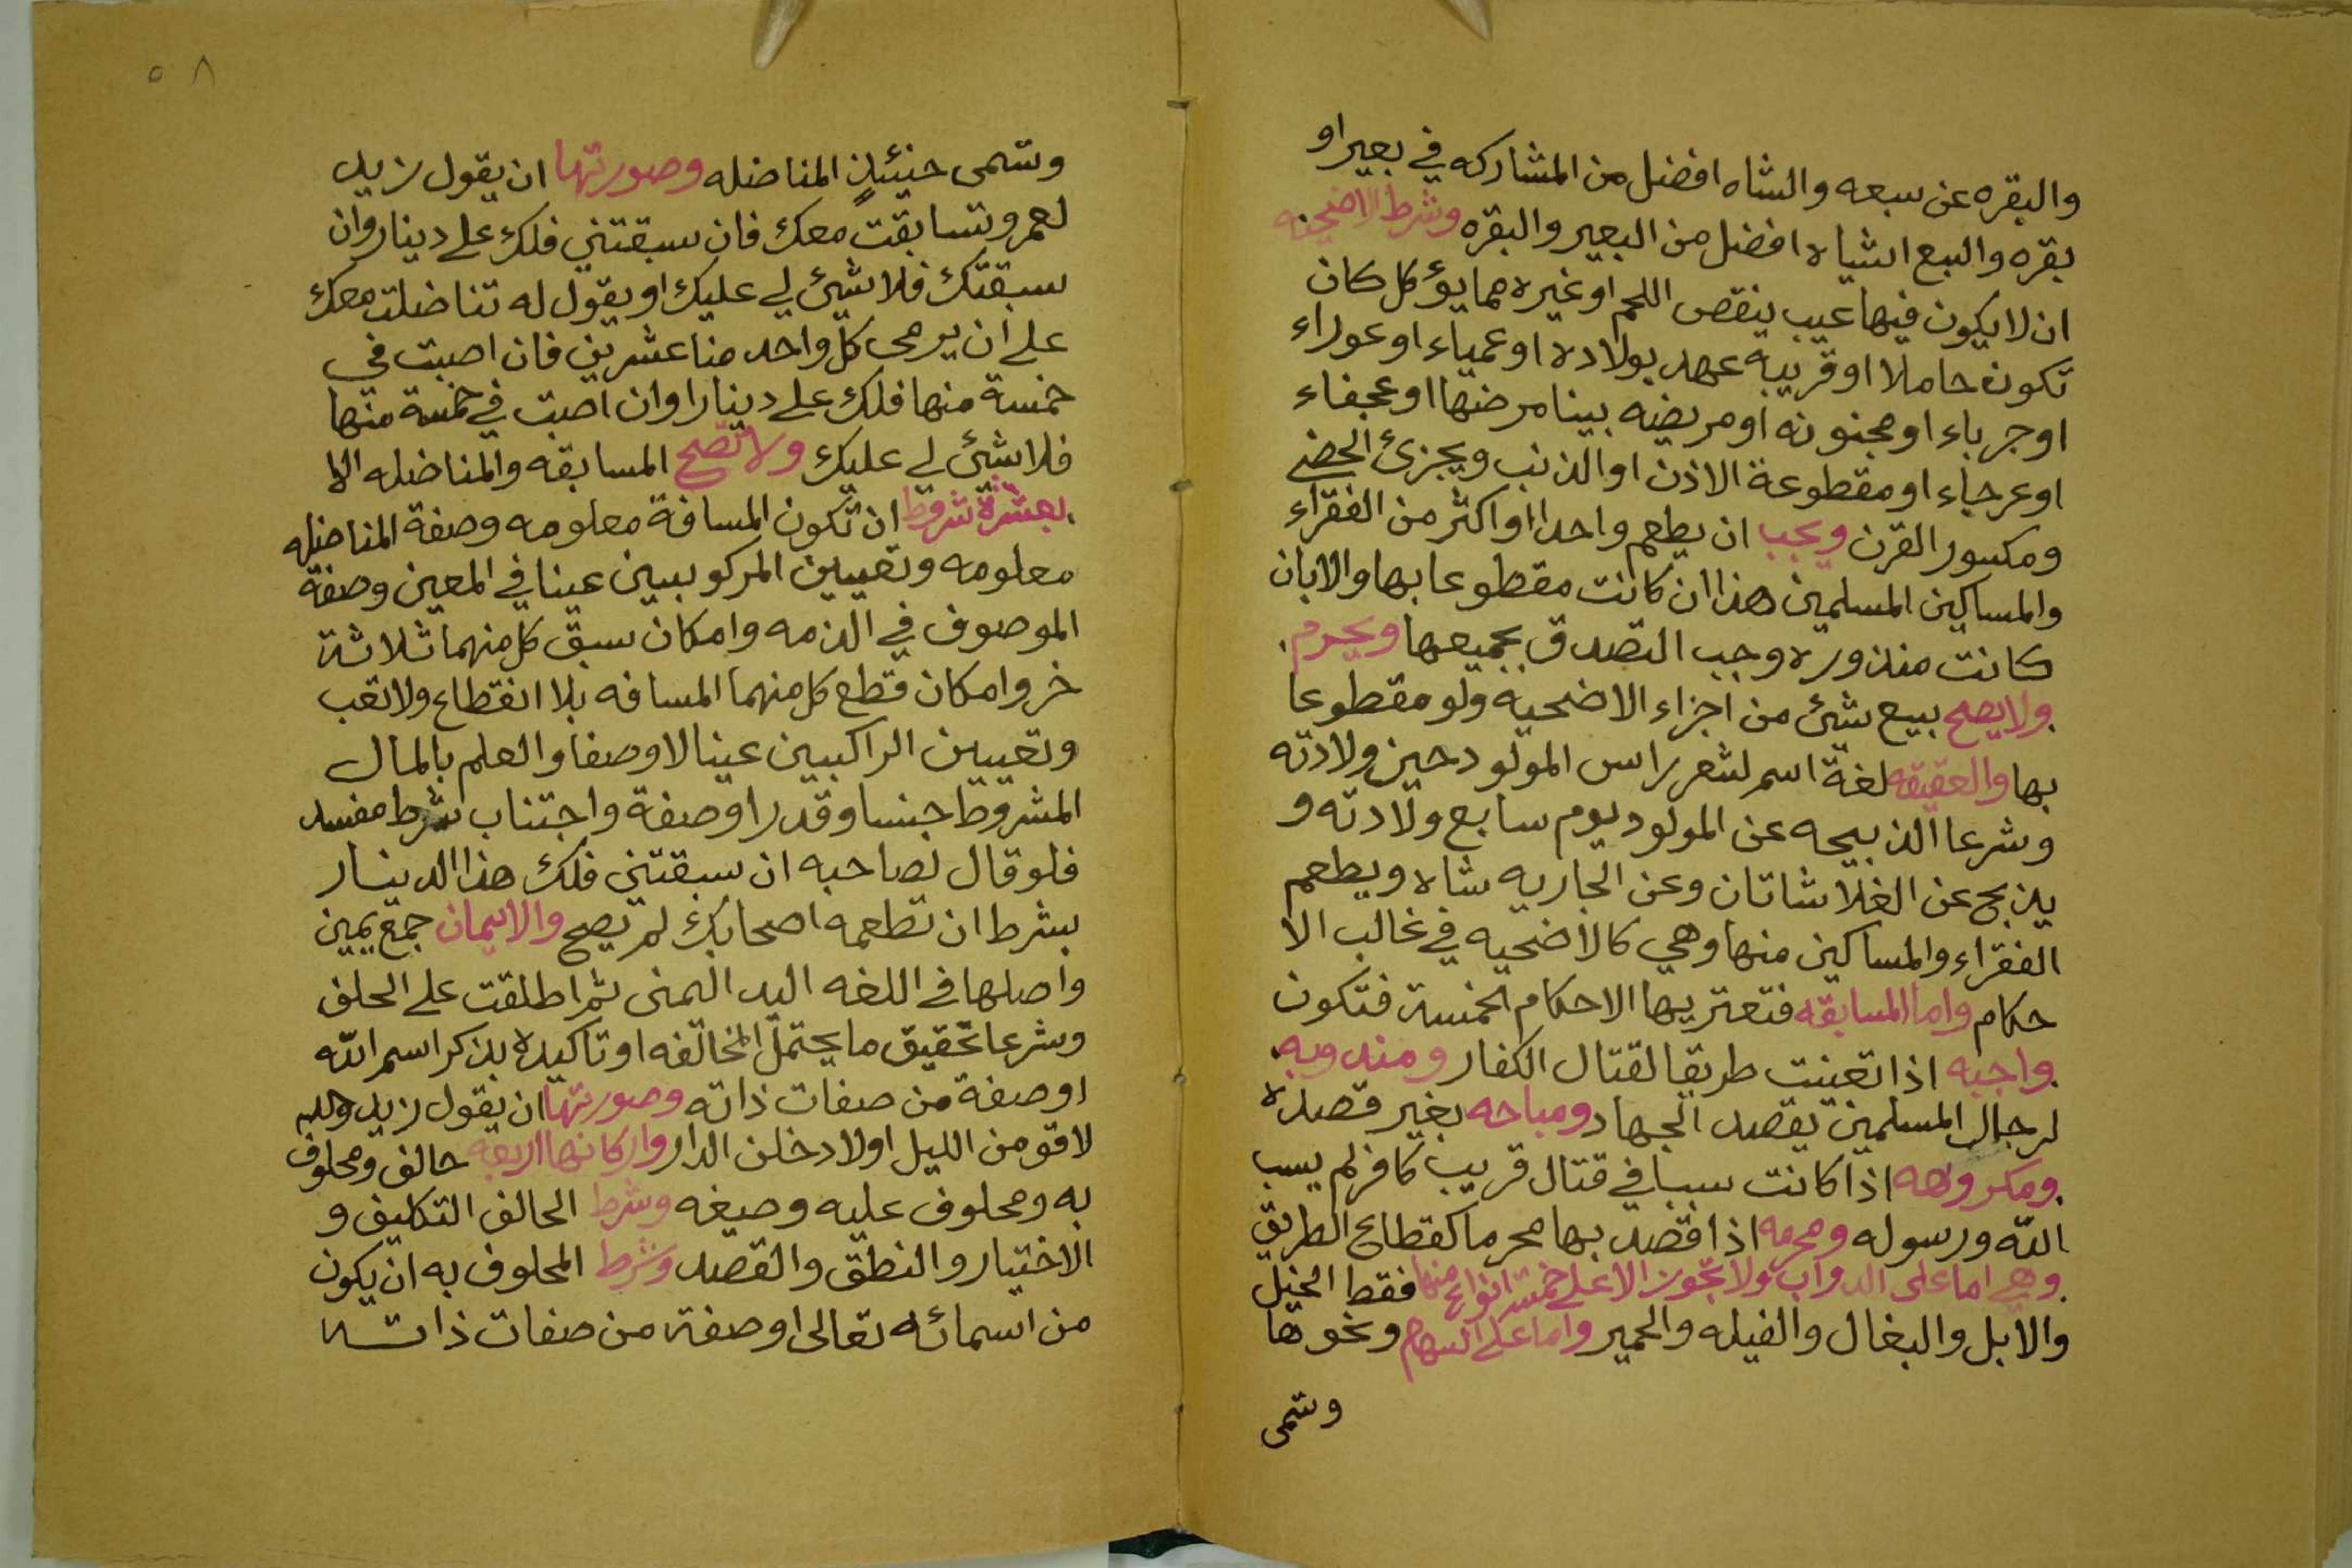 والبقره عن سبعه والشاه افضل من المشاركه في بعير او
بقره والسبع اشياه افضل من البعير والبقره وشرط الاضحيه
ان لا يكون فيها عيب ينقص اللحم او غيره مما يؤكل كان
تكون حاملا او قريبه عهد بولاده او عمياء او عوراء
او جرباء او مجنونه او مريضه بينا مرضها او عجفاء
او عرجاء او مقطوعة الاذن او الذنب ويجزئ الخصى
ومكسور القرن ويجب ان يطعم واحدا او اكثر من الفقراء
والمساكين المسلمين هذا ان كانت مقطوعا بها والا بان
كانت منذوره وجب التصدق بجميعها ويحرم
ولا يصح بيع شئ من اجزاء الاضحيه ولو مقطوعا
بها والعقيقه لغة اسم لشعر راس المولود حين ولادته
وشرعا الذبيحه عن المولود يوم سابع ولادته و
يذبح عن الغلا شاتان وعن الجاريه شاه ويطعم
الفقراء والمساكين منها وهي كالاضحيه في غالب الا
حكام واما المسابقه فتعتريها الاحكام الخمسة فتكون
واجبه اذا تعينت طريقا لقتال الكفار ومندوبه
لرجال المسلمين بقصد الجهاد ومباحه بغير قصده
ومكروهه اذا كانت سببا في قتال قريب كافر لم يسب
الله ورسوله ومحرمه اذا قصد بها محرما كقطاع الطريق
وهي اما على الدواب ولا تجوز الا على خمسة انواع منها فقط الخيل
والابل والبغال والفيله والحمير واما على السهام ونحوها
وتسمى
٥٨
وتسمى حينئذٍ المناضله وصورتها ان يقول زيد
لعمر وتسابقت معك فان سبقتني فلك على دينار وان
سبقتك فلا شيئ لي عليك او يقول له تناضلت معك
على ان يرمى كل واحد منا عشرين فان اصبت في
خمسة منها فلك على دينارا وان اصبت في خمسة منها
فلا شيئ لي عليك ولا تصح المسابقه والمناضله الا
بعشرة شروط ان تكون المسافة معلومه وصفة المناضله
معلومه وتعيين المركوبين عينا في المعين وصفة
الموصوف في الذمه وامكان سبق كل منهما ثلاثة
خر وامكان قطع كل منهما المسافه بلا انقطاع ولا تعب
وتعيين الراكبين عينا لا وصفا والعلم بالمال
المشروط جنسا وقدرا وصفة واجتناب شرط مفسد
فلو قال لصاحبه ان سبقتني فلك هذا الدينار
بشرط ان تطعمه اصحابك لم يصح والايمان جمع يمين
واصلها في اللغه اليد اليمنى ثم اطلقت على الحلف
وشرعا تحقيق ما يحتمل المخالفه او تاكيده بذكر اسم الله
او صفة من صفات ذاته وصورتها ان يقول زيد والله
لاقومن الليل او لادخلن الدار واركانها اربعه حالف ومحلوف
به ومحلوف عليه وصيغه وشرط الحالف التكليف و
الاختيار والنطق والقصد وشرط المحلوف به ان يكون
من اسمائه تعالى او صفة من صفات ذاته